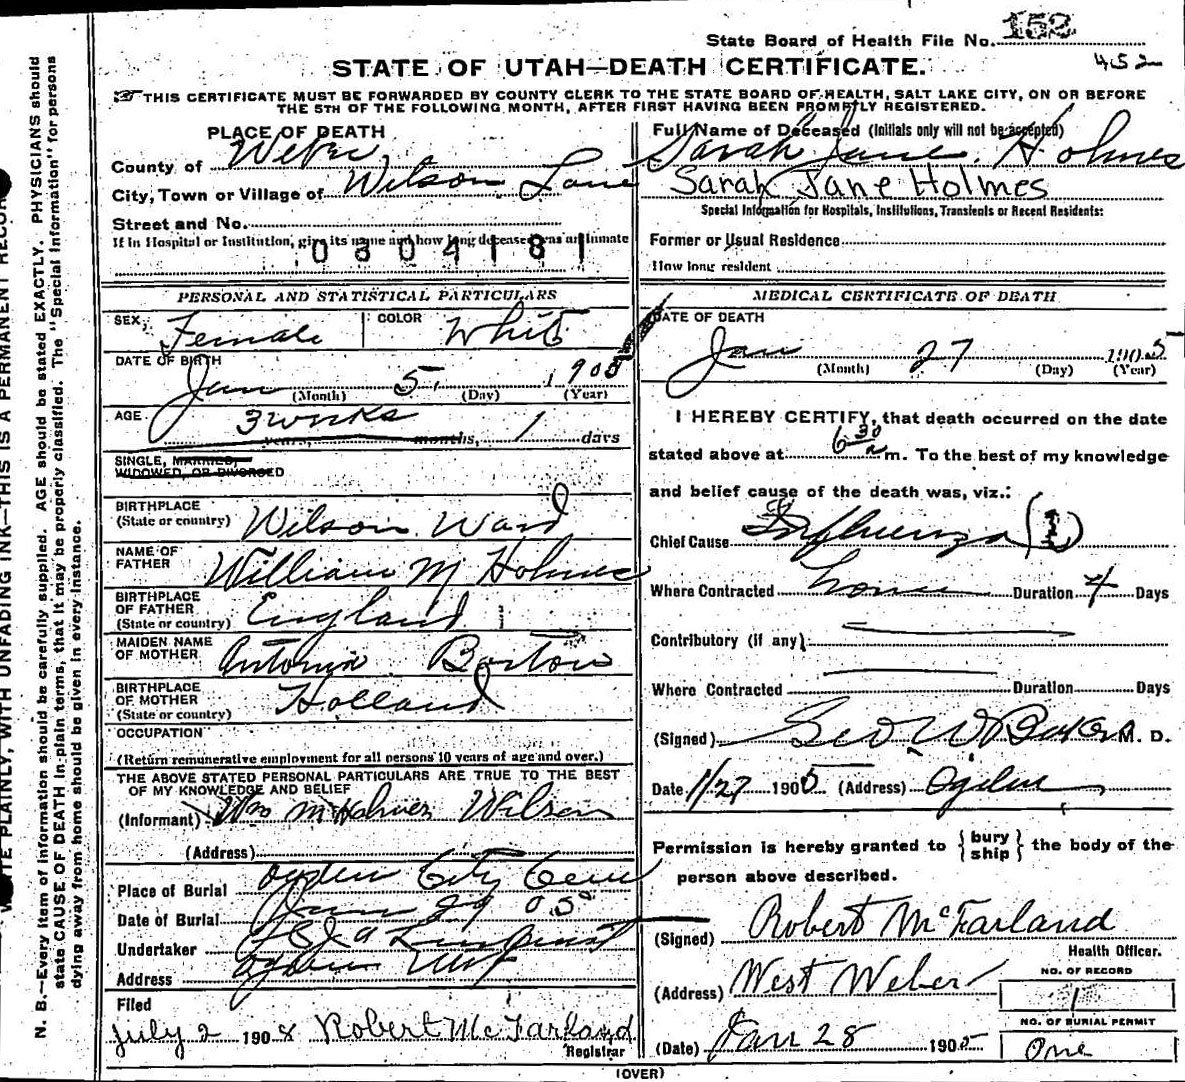 State Board of Health File No. 152
452
STATE OF UTAH—DEATH CERTIFICATE.
THIS CERTIFICATE MUST BE FORWARDED BY COUNTY CLERK TO THE STATE BOARD OF HEALTH, SALT LAKE CITY, ON OR BEFORE
THE 5TH OF THE FOLLOWING MONTH, AFTER FIRST HAVING BEEN PROMPTLY REGISTERED.
PLACE OF DEATH
County of Weber
City, Town or Village of Wilson Lane
Street and No.
If in Hospital or Institution, give its name and how long deceased was an Inmate
0304181
Full Name of Deceased (Initials only will not be accepted)
Sarah Jane Holmes
Sarah Jane Holmes
Special Information for Hospitals, Institutions, Transients or Recent Residents:
Former or Usual Residence
How long resident
PERSONAL AND STATISTICAL PARTICULARS
SEX, Female COLOR White
DATE OF BIRTH
Jan (Month) 5 (Day) 1905 (Year)
AGE 3 weeks
years, months, 1 days
SINGLE, MARRIED,
WIDOWED, OR DIVORCED
BIRTHPLACE
(State or country) Wilson Ward
NAME OF
FATHER William M Holmes
BIRTHPLACE
OF FATHER
(State or country) England
MAIDEN NAME
OF MOTHER Antonia Bortow
BIRTHPLACE
OF MOTHER
(State or country) Holland
OCCUPATION
(Return remunerative employment for all persons 10 years of age and over.)
THE ABOVE STATED PERSONAL PARTICULARS ARE TRUE TO THE BEST
OF MY KNOWLEDGE AND BELIEF
(Informant) Wm M Holmes Wilson
(Address)
Place of Burial Ogden City Cem
Date of Burial Jan 29 05
Undertaker Lindquist
Address Ogden Utah
Filed
July 2 1908 Robert McFarland
Registrar
MEDICAL CERTIFICATE OF DEATH
DATE OF DEATH
Jan 27 1905
(Month) (Day) (Year)
I HEREBY CERTIFY, that death occurred on the date
stated above at 6 30 a m. To the best of my knowledge
and belief cause of the death was, viz.:
Chief Cause Influenza (1)
Where Contracted home Duration 4 Days
Contributory (if any)
Where Contracted Duration Days
(Signed) Geo W Baker M. D.
Date 1/27 1905 (Address) Ogden
Permission is hereby granted to { bury ship } the body of the
person above described.
(Signed) Robert McFarland
Health Officer.
(Address) West Weber
NO. OF RECORD
1
(Date) Jan 28 1905
NO. OF BURIAL PERMIT
One
(OVER)
WRITE PLAINLY, WITH UNFADING INK—THIS IS A PERMANENT RECORD
N. B.—Every item of information should be carefully supplied. AGE should be stated EXACTLY. PHYSICIANS should
state CAUSE OF DEATH in plain terms, that it may be properly classified. The "Special Information" for persons
dying away from home should be given in every instance.